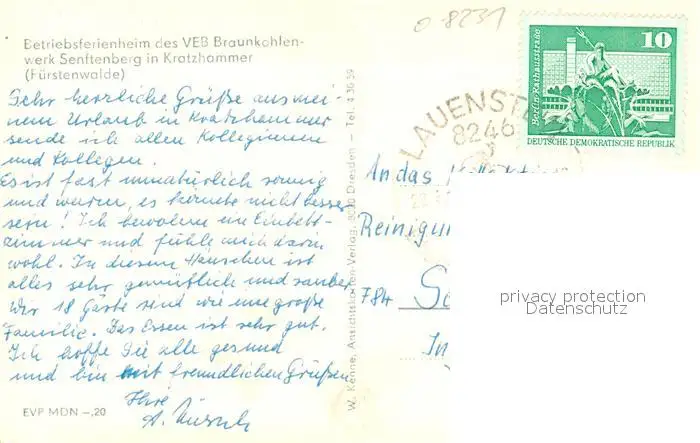 Betriebsferienheim des VEB Braunkohlen-
werk Senftenberg in Kratzhammer
(Fürstenwalde)
Sehr herzliche Grüße aus mei-
nem Urlaub in Kratzhammer
sende ich allen Kolleginnen
und Kollegen.
Es ist fast unnatürlich sonnig
und warm, es könnte nicht besser
sein! Ich bewohne ein Einbett-
zimmer und fühle mich darin
wohl. In diesem Häuschen ist
alles sehr gemütlich und sauber
Wir 18 Gäste sind wie eine große
Familie. Das Essen ist sehr gut.
Ich hoffe Sie alle gesund
und bin mit freundlichen Grüßen
Ihre
A.
EVP MDN –,20
W. Kenne, Ansichtskarten-Verlag, 8020 Dresden – Tel. 4 36 59
o 8231
LAUENSTE
8246
10
Berlin-Rathausstraße
DEUTSCHE DEMOKRATISCHE REPUBLIK
An das
Reinigun
784
In
privacy protection
Datenschutz